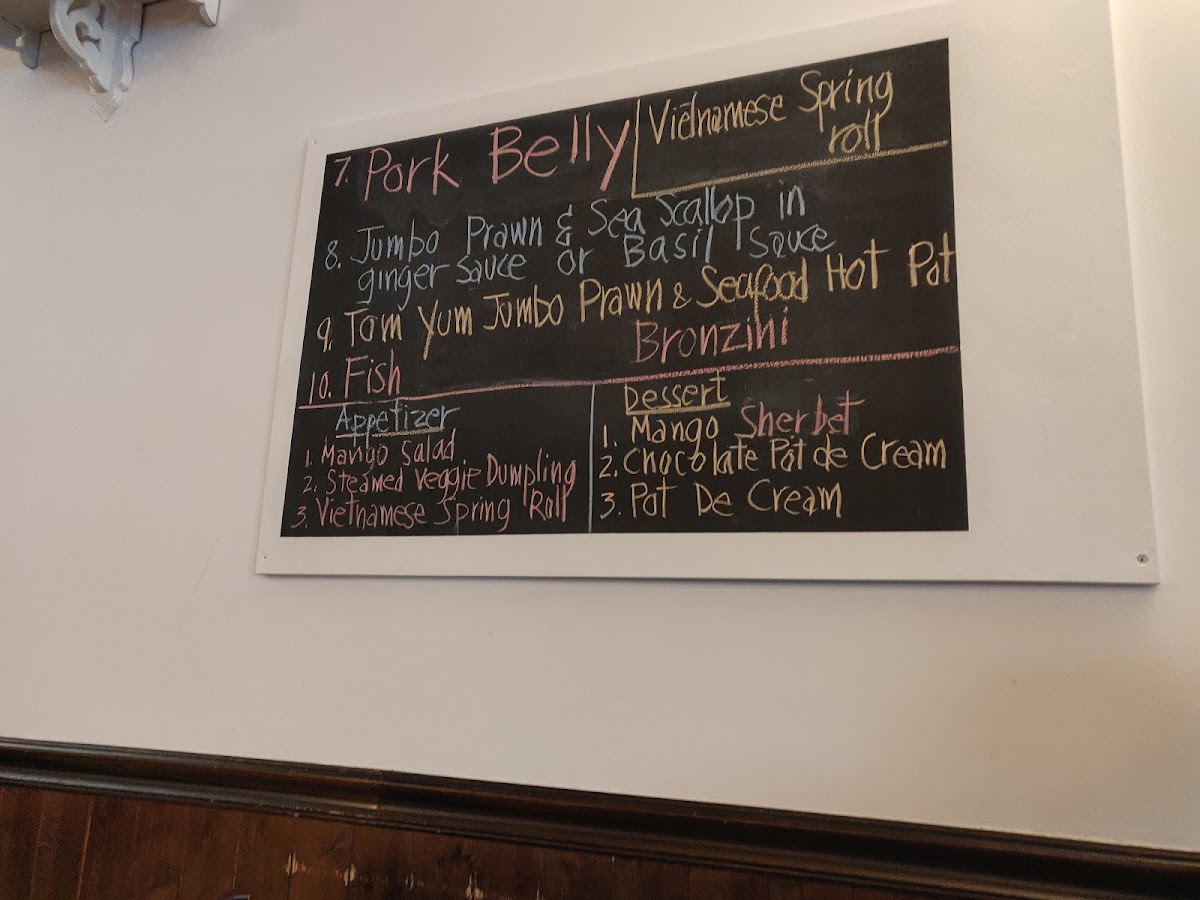 7. Pork Belly
Vietnamese Spring
roll
8. Jumbo Prawn & Sea Scallop in
ginger sauce or Basil Sauce
9. Tom Yum Jumbo Prawn & Seafood Hot Pot
10. Fish Bronzini
Appetizer
1. Mango Salad
2. Steamed Veggie Dumpling
3. Vietnamese Spring Roll
Dessert
1. Mango Sherbet
2. Chocolate Pot de Cream
3. Pot De Cream